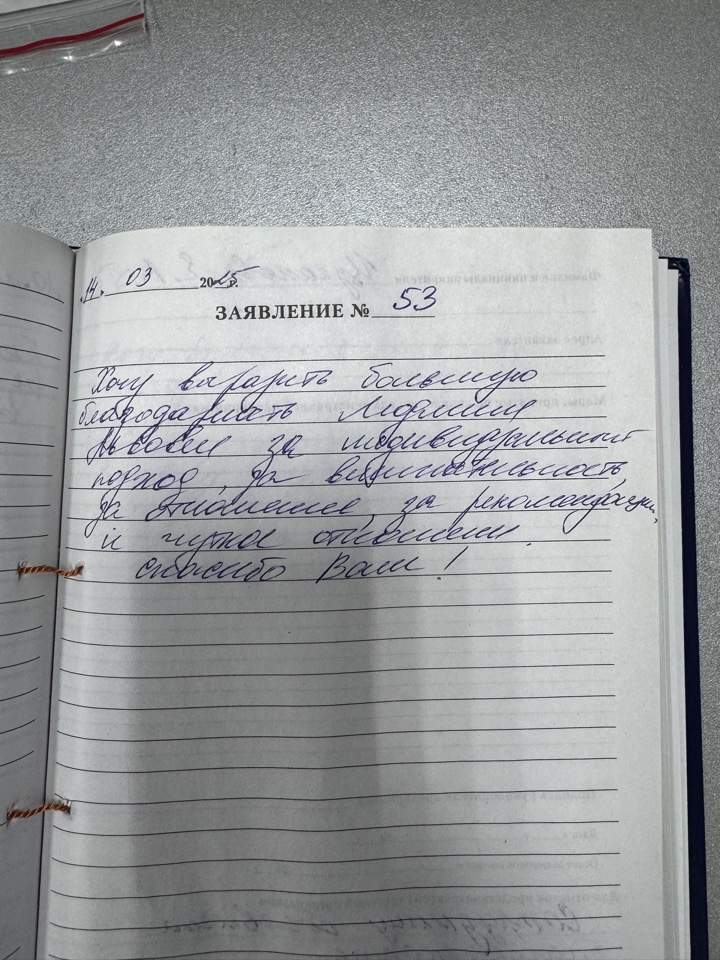 14. 03 2025 г.
ЗАЯВЛЕНИЕ № 53
Хочу выразить большую
благодарность Людмиле
Львовне за индивидуальный
подход, за внимательность,
за отношение, за рекомендации,
и чуткое отношение.
Спасибо Вам!